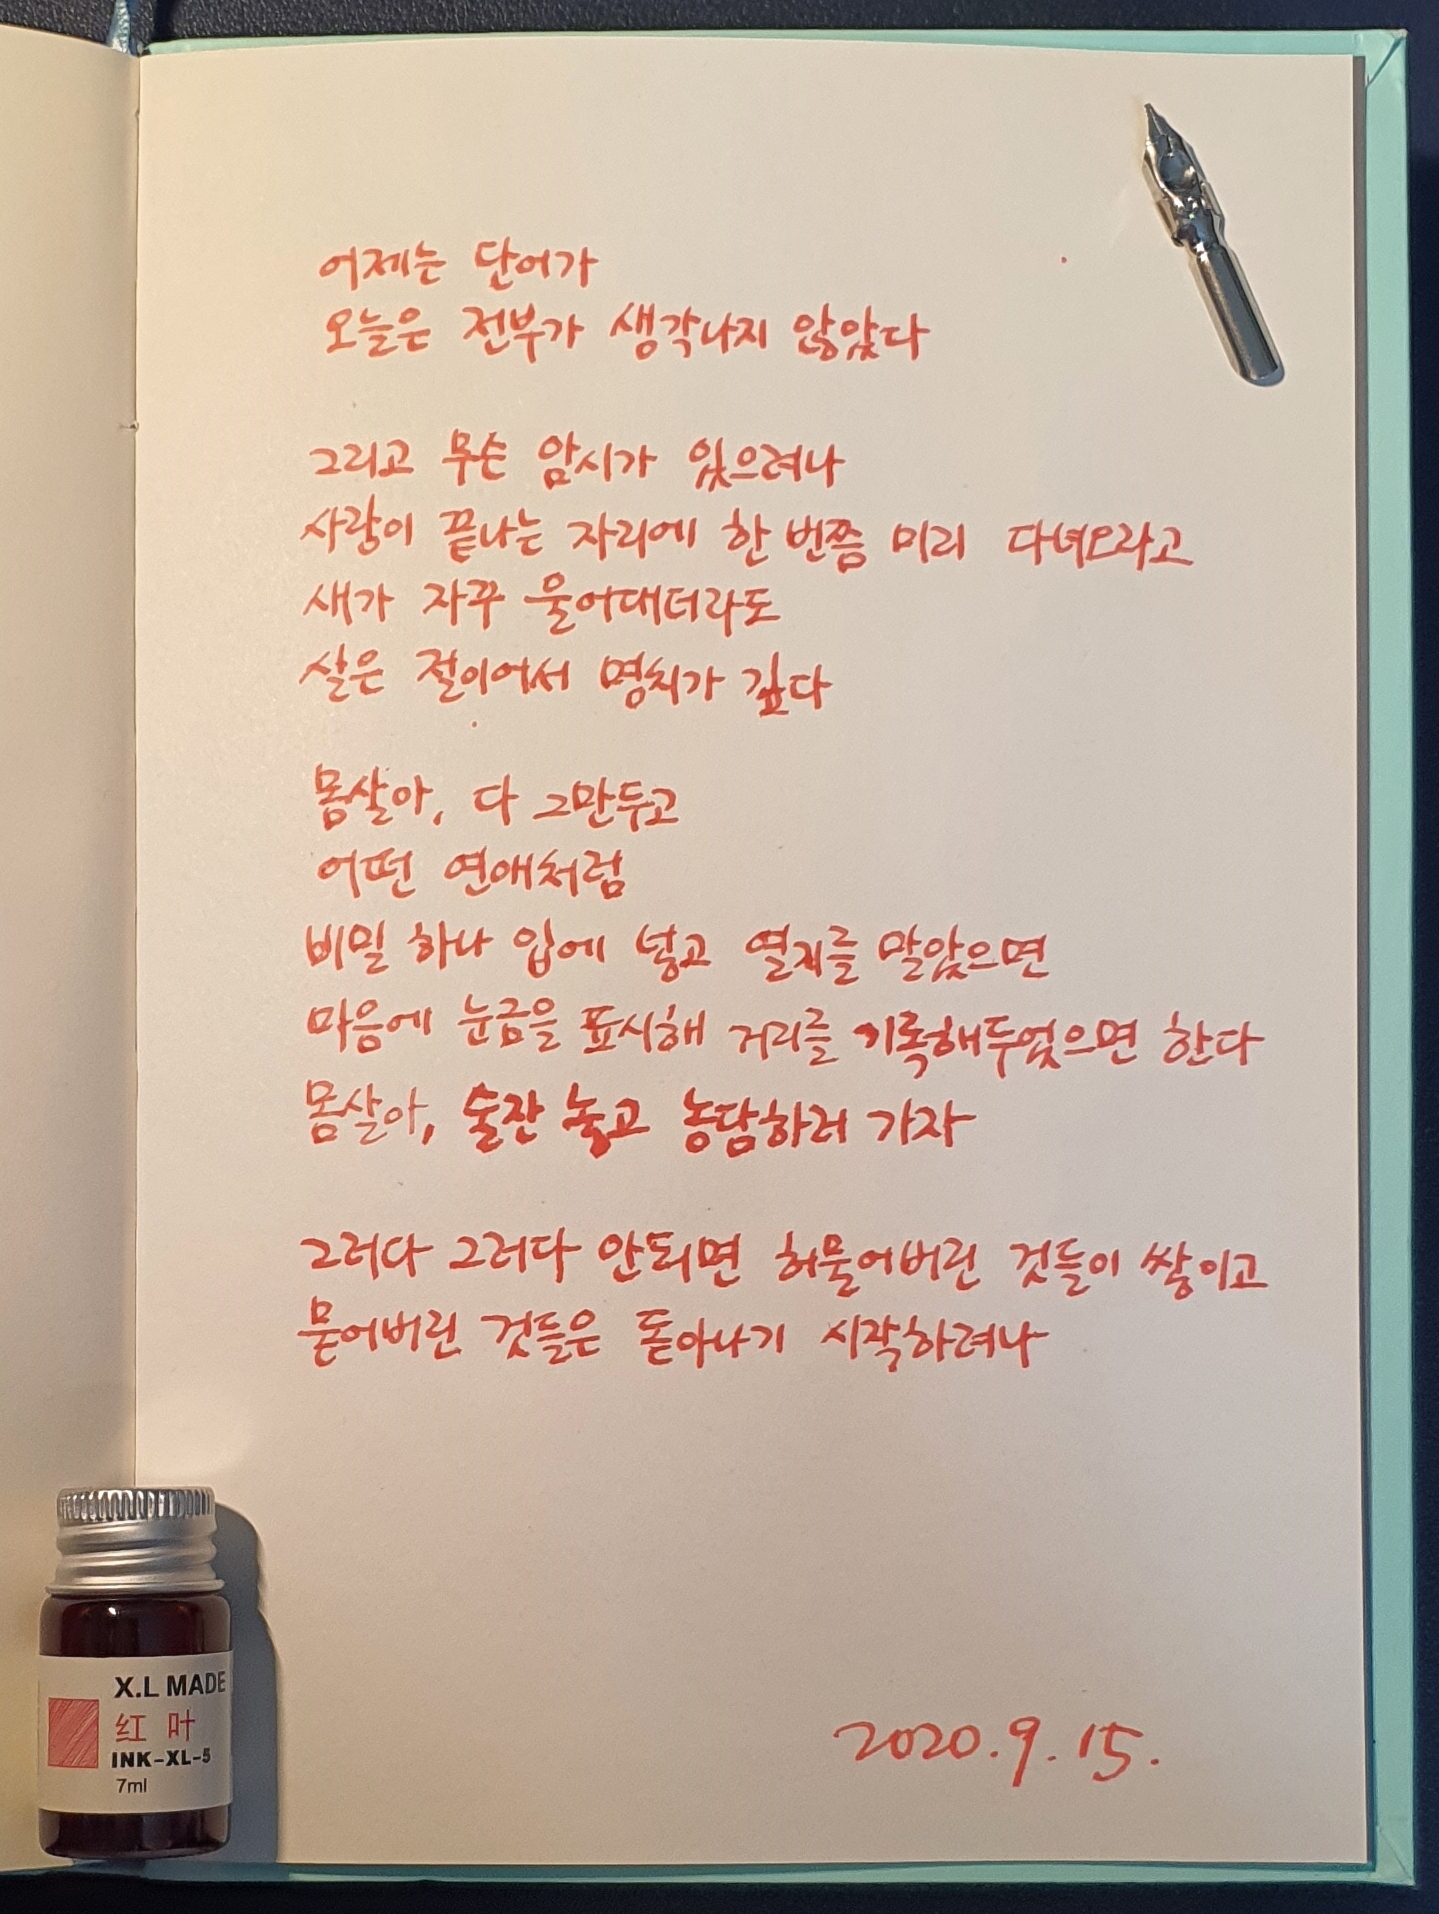 어제는 단어가
오늘은 전부가 생각나지 않았다
그리고 무슨 암시가 있으려나
사랑이 끝나는 자리에 한 번쯤 미리 다녀오라고
새가 자꾸 울어대더라도
살은 절이어서 명치가 깊다
몸살아, 다 그만두고
어떤 연애처럼
비밀 하나 입에 넣고 열지를 말았으면
마음에 눈금을 표시해 거리를 기록해두었으면 한다
몸살아, 술잔 놓고 농담하러 가자
그러다 그러다 안되면 허물어버린 것들이 쌓이고
묻어버린 것들은 돋아나기 시작하려나
2020. 9. 15.
X.L MADE
红 叶
INK-XL-5
7ml